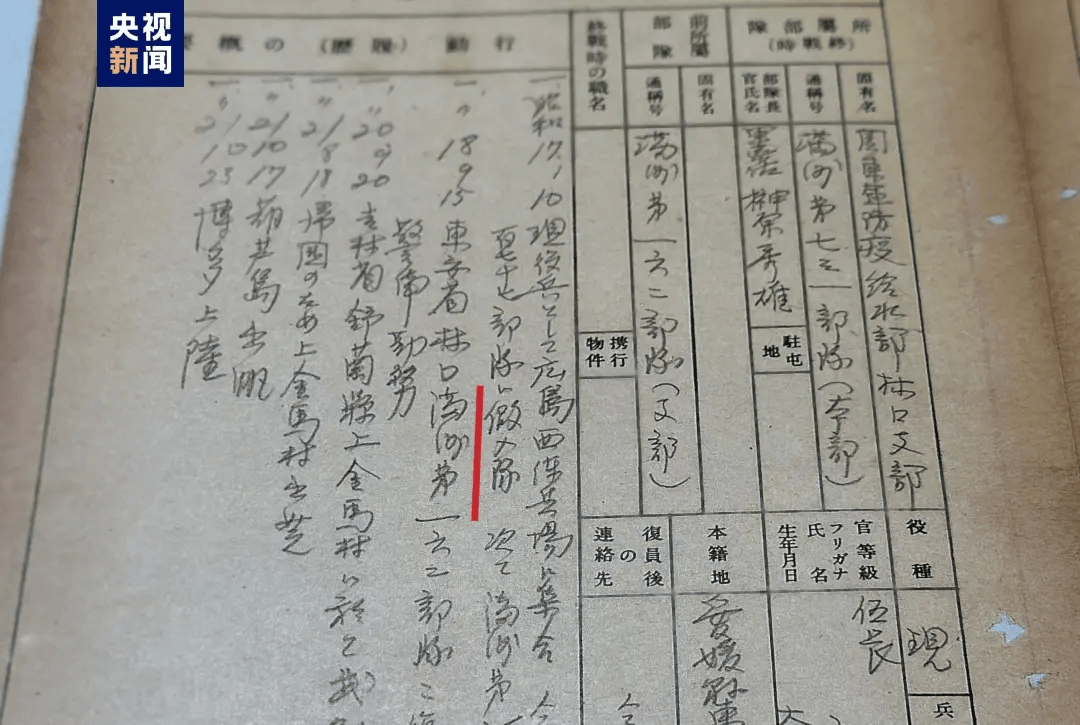 央视
新闻
所屬部隊
(終戰時)
固有名
關東軍防疫給水部林口支部
通稱号
満洲第七三一部隊(本部)
部隊長
官氏名
榊原秀雄
駐屯
地
前所屬
部隊
固有名
通稱号
満洲第一六二部隊(支部)
終戰時の職名
携行
物件
役種
現
兵
官等級
フリガナ
氏名
生年月日
伍長
本籍地
愛媛縣
復員後
の
連絡先
行動(履歷)の概
一、昭和17、10 現役兵として広島西練兵場に集合
部隊に仮入隊 次で満洲第
一、〃 18 9 15 東安省林口満洲第一六二部隊
警備勤務
一、〃 20 9 20 吉林省舒蘭縣上金馬村に於て
一、〃 21 8 18 帰国のため上金馬村出発
一、〃 21 10 17 葫芦島出帆
一、〃 21 10 23 博多上陸